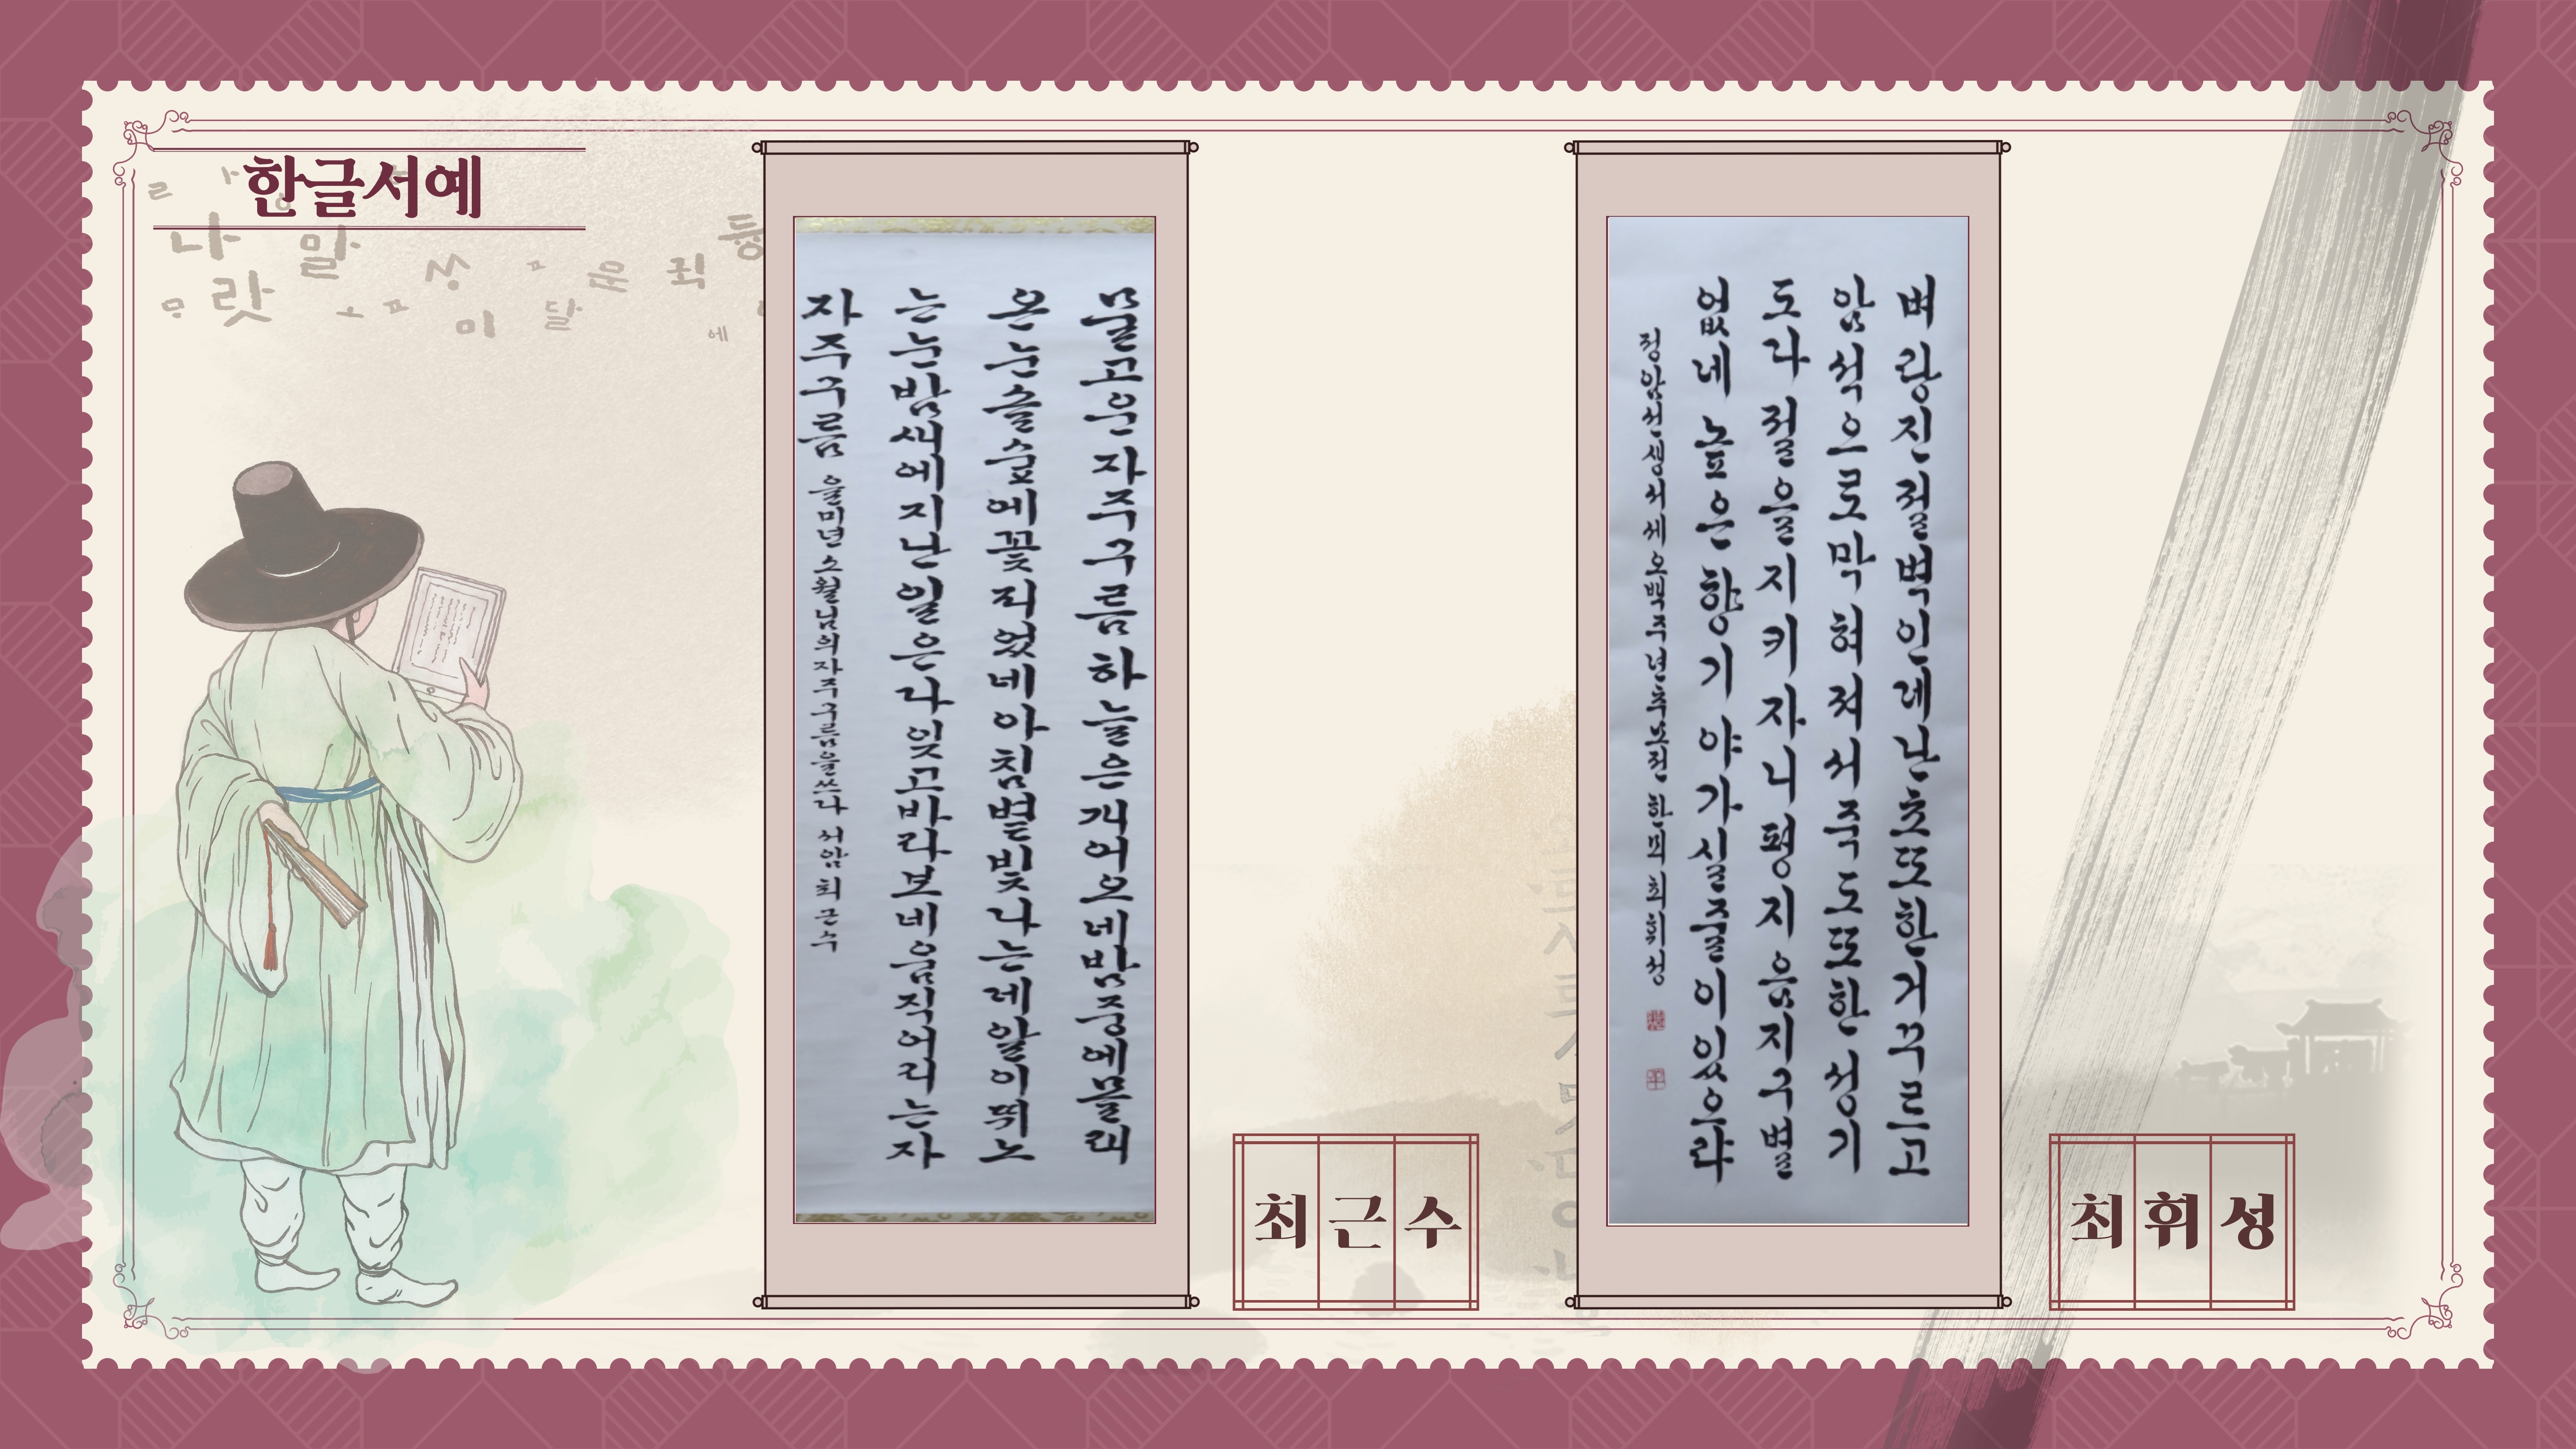 한글서예
물고운자주구름하늘은개어오네밤중에몰래
온눈솔숲에꽃피었네아침볕빛나는데알이뛰노
는눈밤새에지난일은다잊고바라보네움직어리는자
자주구름 을미년 소월님의자주구름을쓰다 서암 최근수
최근수
벼랑진절벽인데난초또한거꾸르고
암석으로막혀져서죽도또한성기
도다절을지키자니평지음지구별
없네높은향기야가실줄이있으랴
정암선생서세오백주년추모전 한뫼 최휘성
최휘성